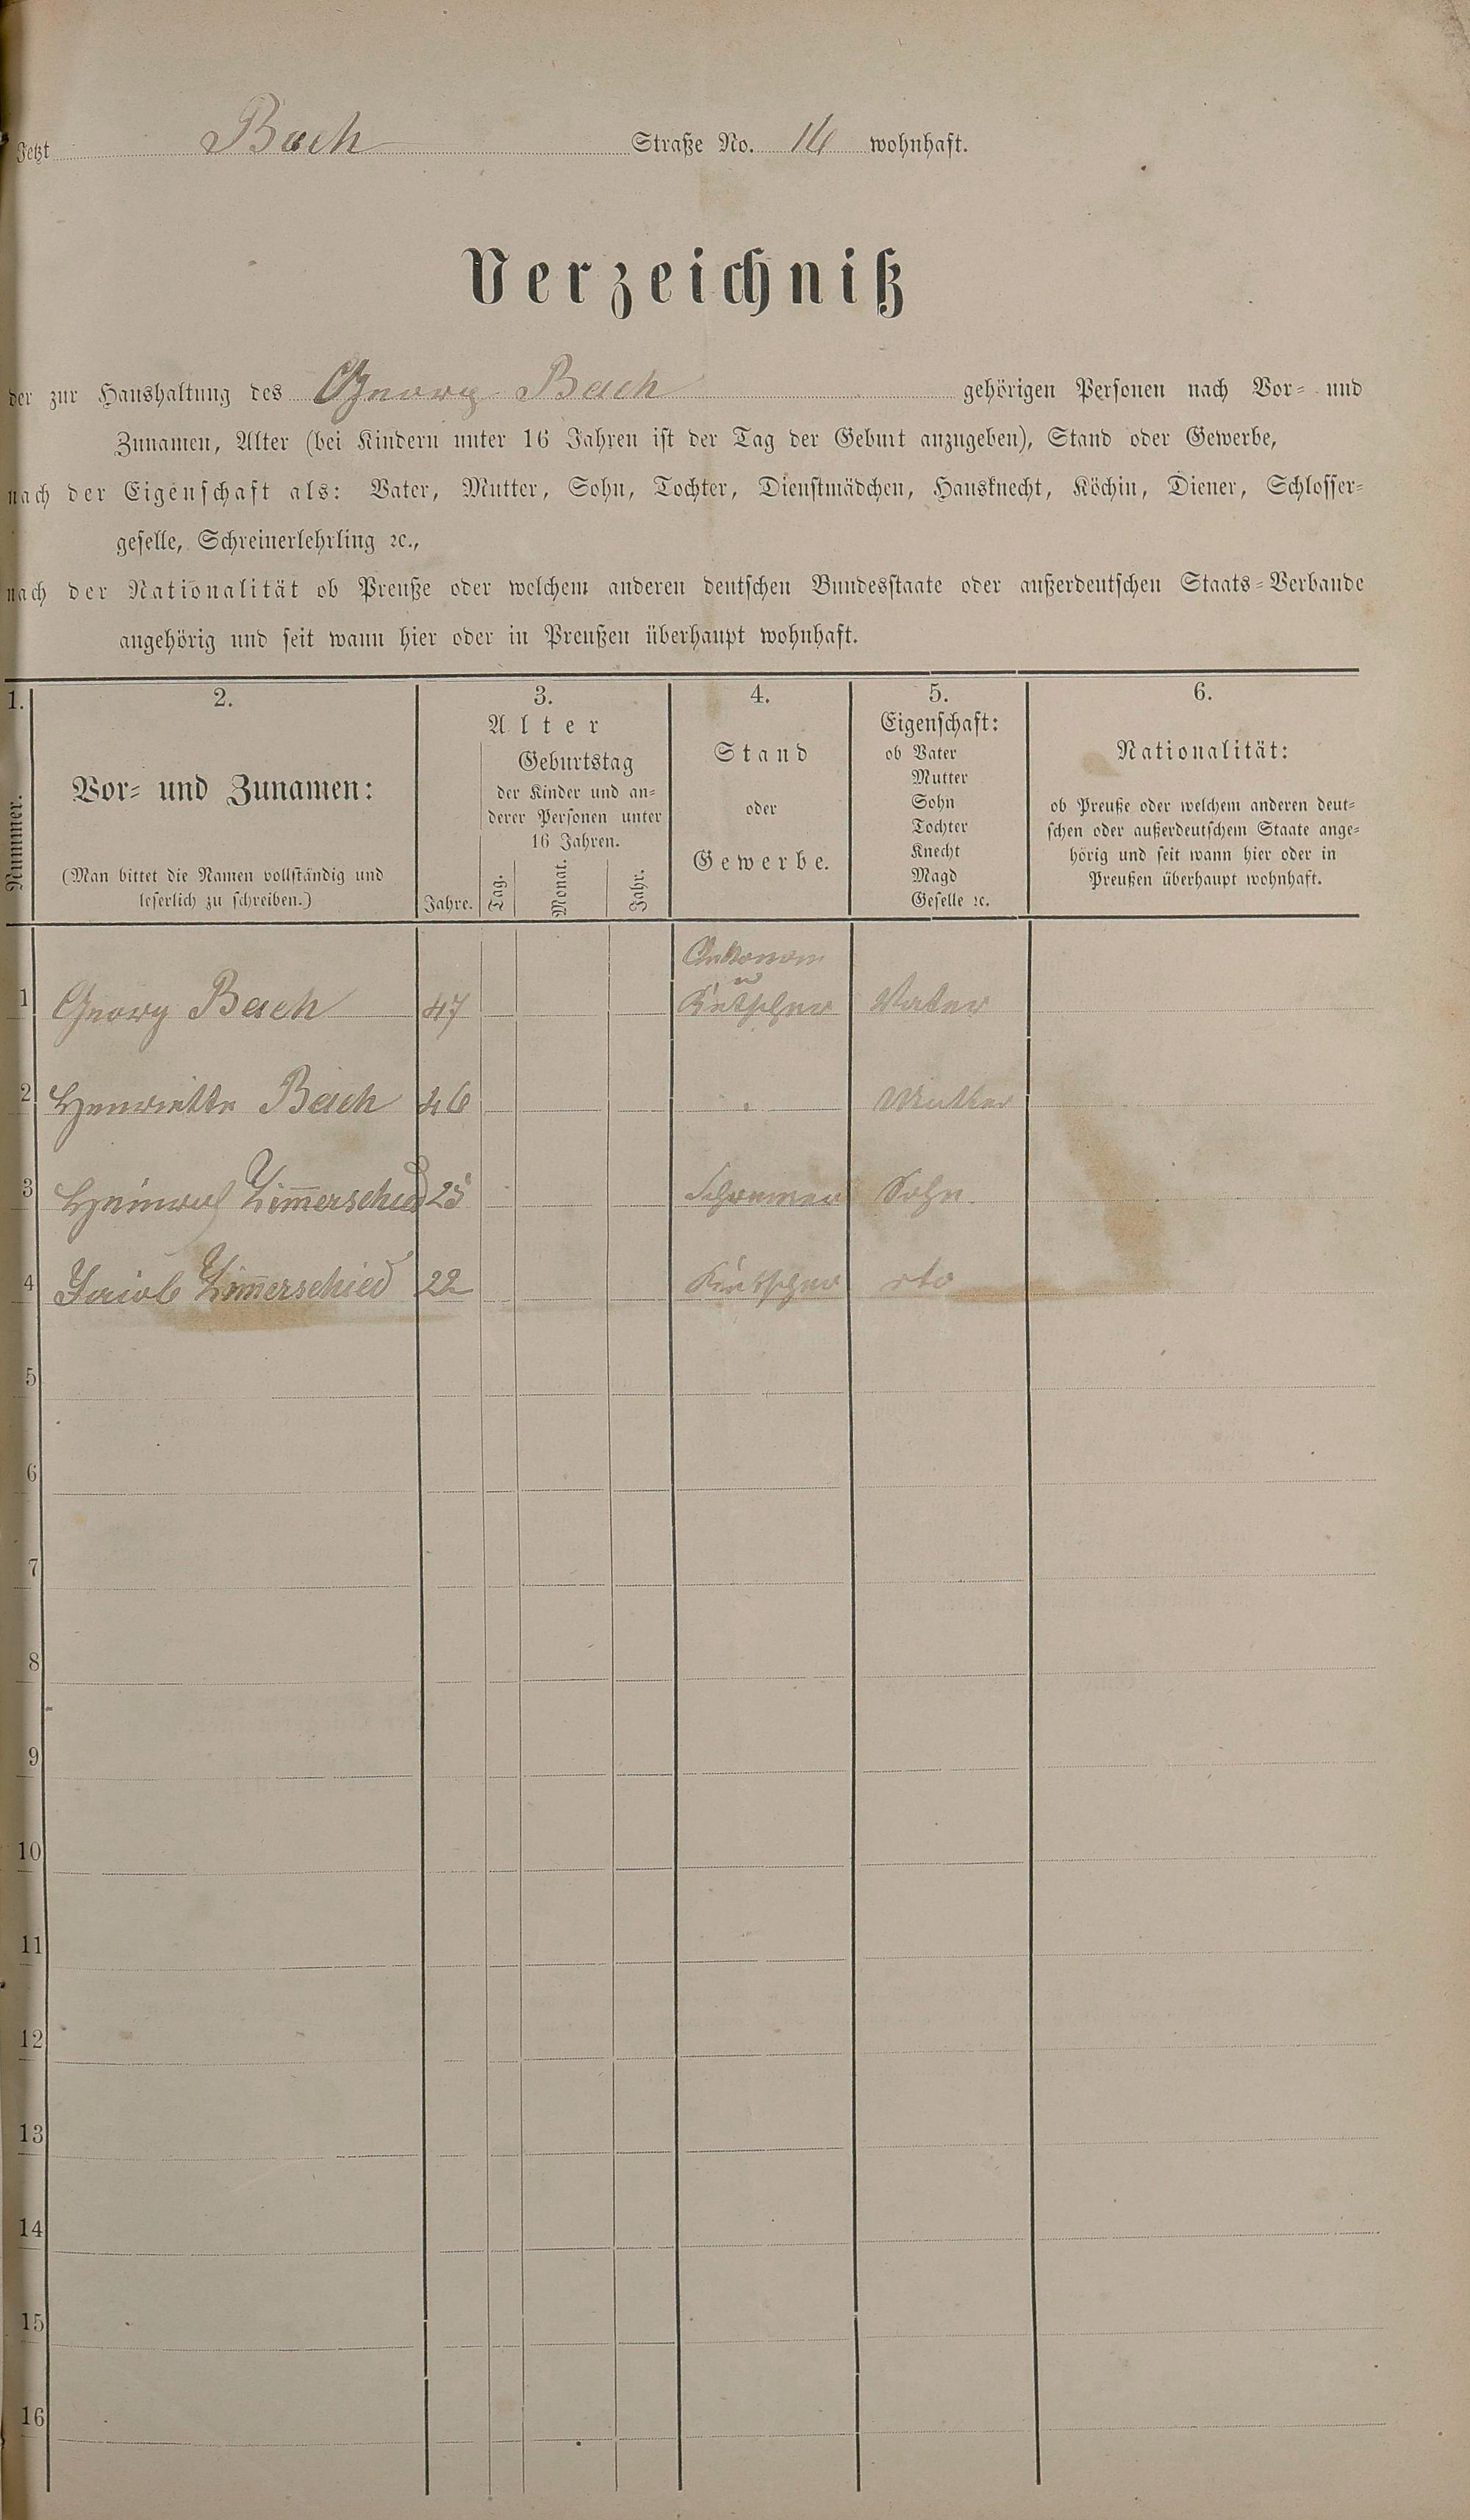 Jetzt Bach Straße No. 16 wohnhaft.
Verzeichniß
der zur Haushaltung des Georg Bach gehörigen Personen nach Vor- und
Zunamen, Alter (bei Kindern unter 16 Jahren ist der Tag der Geburt anzugeben), Stand oder Gewerbe,
nach der Eigenschaft als: Vater, Mutter, Sohn, Tochter, Dienstmädchen, Hausknecht, Köchin, Diener, Schlosser-
geselle, Schreinerlehrling ꝛc.,
nach der Nationalität ob Preuße oder welchem anderen deutschen Bundesstaate oder außerdeutschen Staats-Verbande
angehörig und seit wann hier oder in Preußen überhaupt wohnhaft.
1.
Nummer.
2.
Vor- und Zunamen:
(Man bittet die Namen vollständig und
leserlich zu schreiben.)
3.
Alter
Jahre.
Geburtstag
der Kinder und an-
derer Personen unter
16 Jahren.
Tag.
Monat.
Jahr.
4.
Stand
oder
Gewerbe.
5.
Eigenschaft:
ob Vater
Mutter
Sohn
Tochter
Knecht
Magd
Geselle ꝛc.
6.
Nationalität:
ob Preuße oder welchem anderen deut-
schen oder außerdeutschem Staate ange-
hörig und seit wann hier oder in
Preußen überhaupt wohnhaft.
Oekonom
u
1 Georg Bach 47 Kutscher Vater
2 Henriette Bach 46 Mutter
3 Heinrich Zim̅erschied 25 Schreiner Sohn
4 Jacob Zim̅erschied 22 Kutscher dto
5
6
7
8
9
10
11
12
13
14
15
16